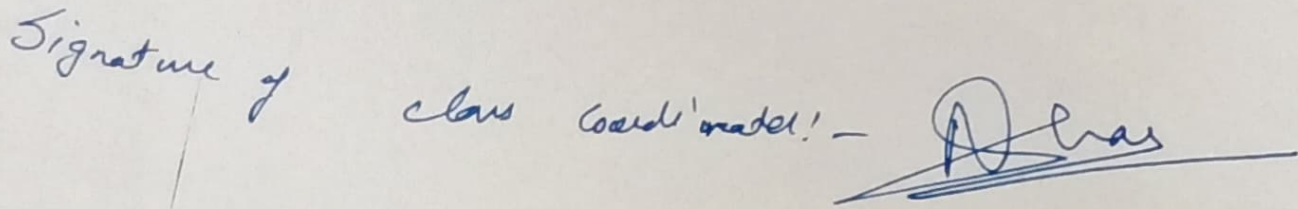 Signature of class coordinator:-